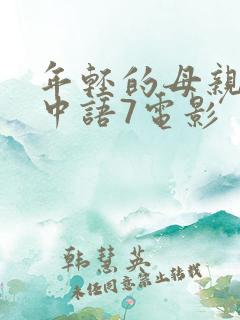 年輕的母親
中語7電影
韩慧英
未经同意禁止转载